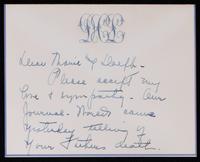 Dear & Dolph -
Please accept my
love & sympathy - Our
Journal - came
yesterday telling of
your father's death.